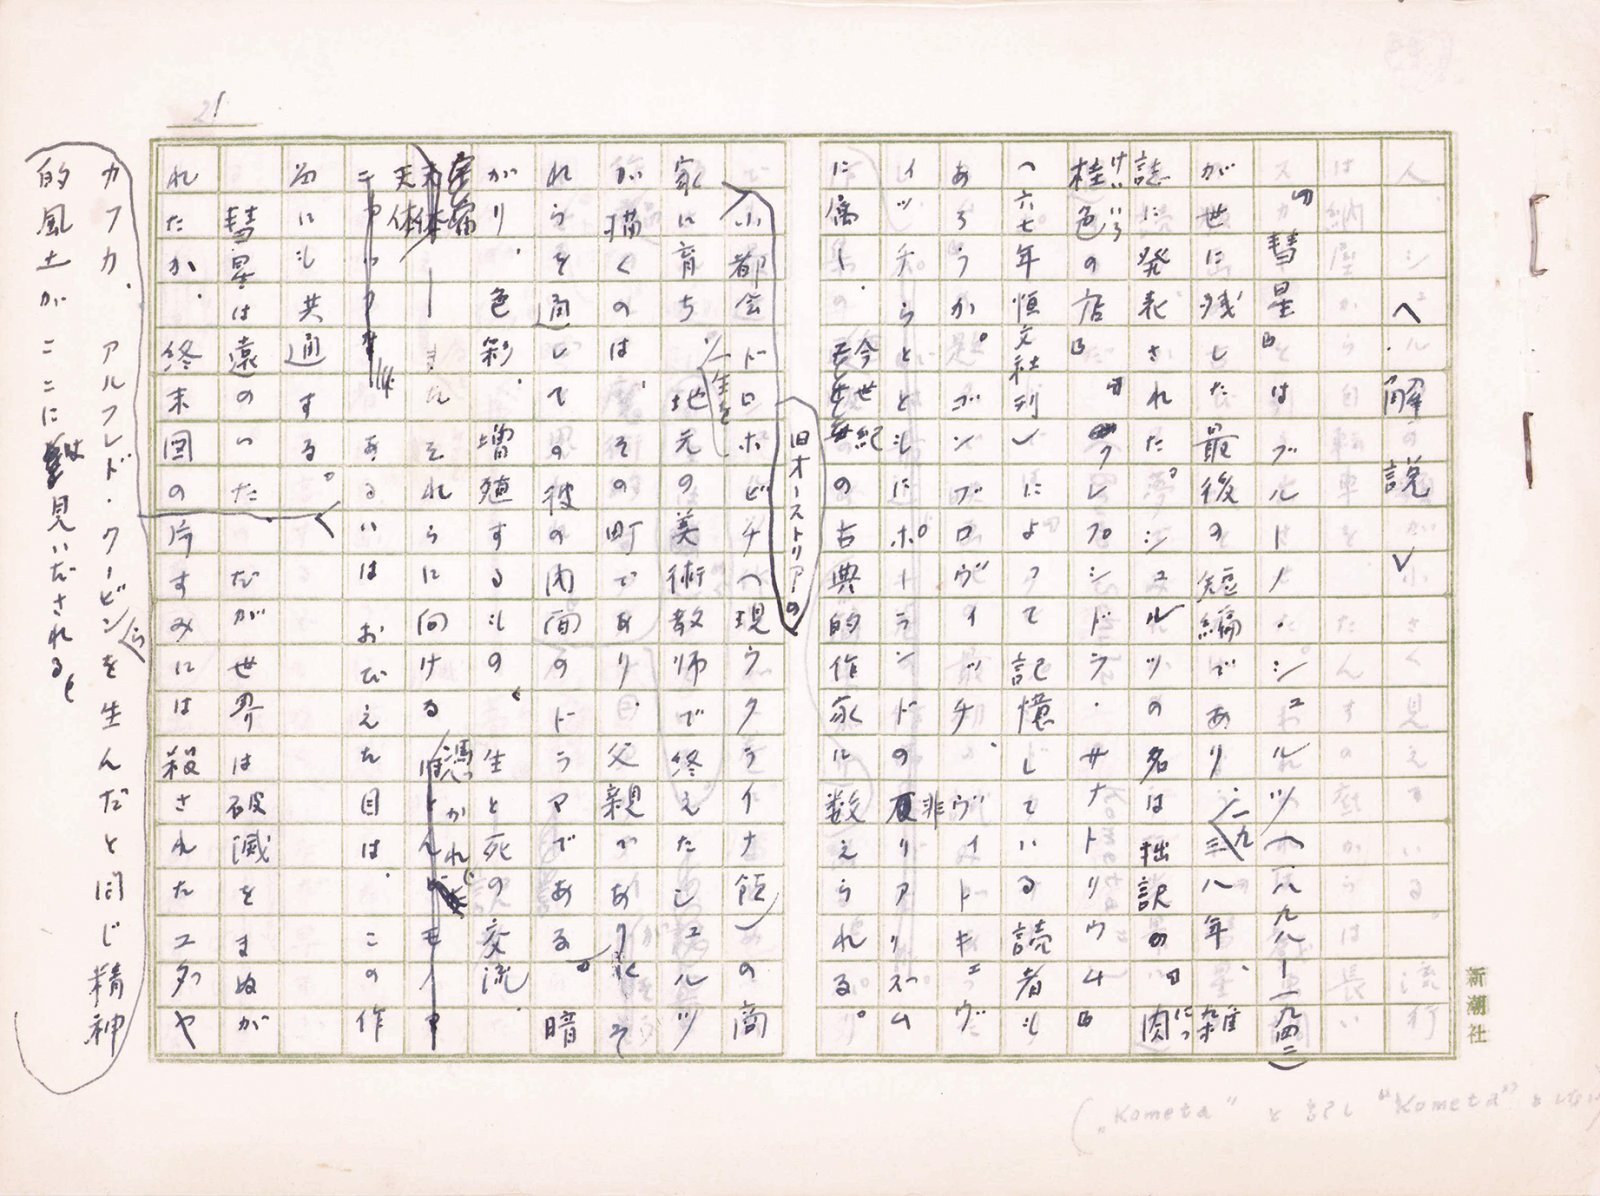 21
〈解説〉
『彗星』はブルーノ・シュルツ(一八九八ー一九四二)
が世に残した最後の短編であり、一九三八年、雑
誌に発表された。シュルツの名は拙訳の『肉
桂色の店』『クレプシドラ・サナトリウム』
にっ
けいいろ
(六七年恒文社刊)によって記憶している読者も
あろうか。ゴンブロヴィッチ、ヴィトキェヴ
ィッチらとともにポーランドの非リアリズム
に属し、今世紀の古典的作家に数えられる。
旧オーストリアの
小都会ドロホビチ(現ウクライナ領)の商
家に育ち、一生を地元の美術教師で終えたシュルツ
が描くのは、その町であり、父親であり、そ
れらを通しての彼の内面のドラマである。暗
がり、色彩、増殖するもの、生と死の交流、
天体ーーそれらに向ける憑かれ
あるいはおびえた目は、この作
品にも共通する。
彗星は遠のいた。だが世界は破滅をまぬが
れたか。終末図の片すみには殺されたユダヤ
カフカ、アルフレド・クービンらを生んだと同じ精神
的風土がここには見いだされる。
新潮社
("Kometa" と記し "Kometa"